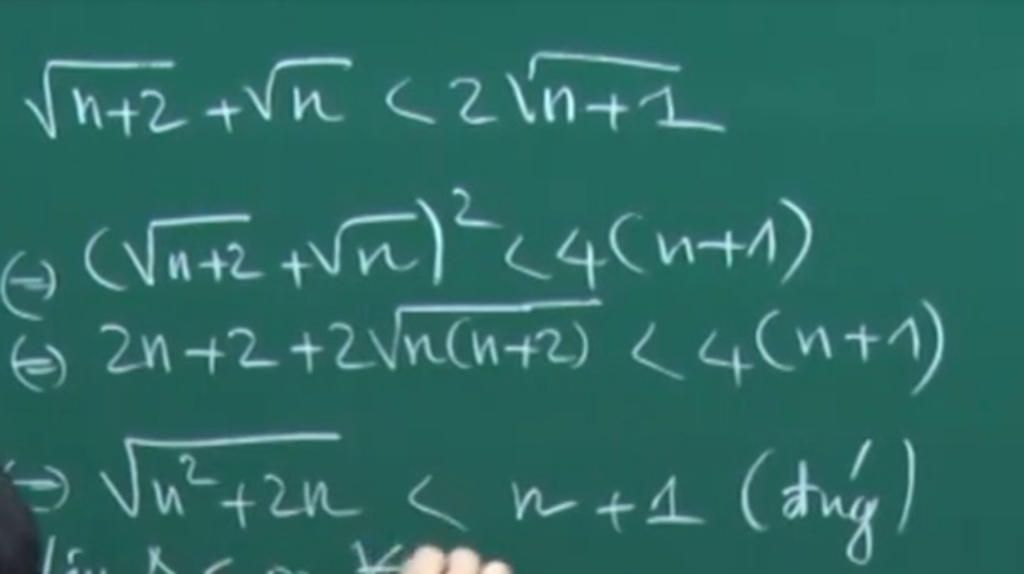 √n+2 + √n < 2√n+1
⇔ (√n+2 + √n)² < 4(n+1)
⇔ 2n+2+2√n(n+2) < 4(n+1)
⇔ √n²+2n < n+1 (đúng)